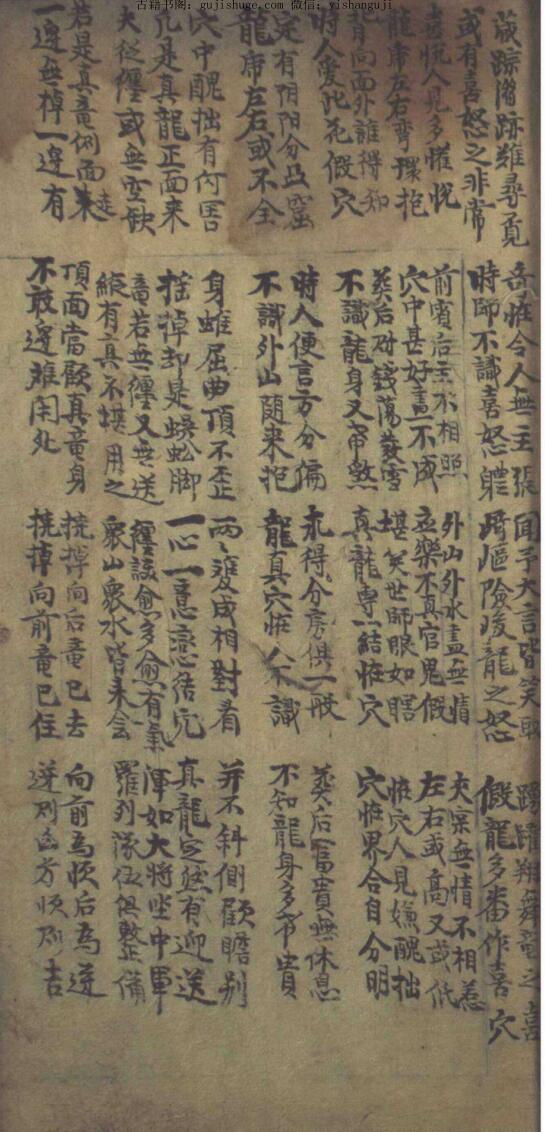 古籍书阁: gujishuge.com 微信: yishanguji
藏踪潜跡难尋覓 奇怪令人無主張 聞予大言皆笑取 踴躍翔舞竜之喜
或有喜怒之非常 時師不識喜怒躰 崎嶇險峻龍之怒 假龍多番作喜穴
喜悦人見多悦 前賓后主不相照 外山外水盡無情 夾案無情不相惹
龍虎左右彎環抱 穴中甚好盡不成 不真官鬼假 左右或高又或低
背向面外誰得知 葬后 蕩散雪 堪笑世師眼如瞎 怪穴人見嫌醜拙
時人愛此花假穴 不識龍身又帶煞 真龍專一結怪穴 穴怪界合自分明
定有阴阳分凸窟 時人便言方分偏 永得分房俱一般 葬后富貴無休息
龍虎左右或不全 不識外山随来抱 龍真穴怪人不識 不知龍身多帶貴
穴中醜拙有何害 身雖屈曲頂不歪 両邊成相對看 并不斜側顧瞻别
凢是真龍正面来 摇掉却是蜈蚣脚 一心一意恋结穴 真龍定然有迎送
夫從纏或無空缺 竜若無纏又無送 纏護愈多愈有氣 渾如大將坐中軍
縱有真不堪用之 衆山衆水皆来会 羅列隊伍俱整備
若是真竜側面来 頂面當顧真竜身 撓掉向后竜已去 向前為順后為逆
一邊無掉一邊有 不敢邊难閑处 撓掉向前竜已住 逆則凶方順則吉